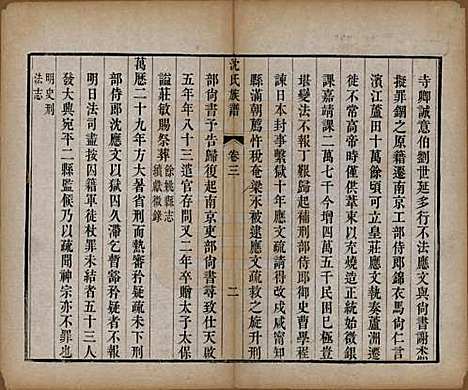 寺卿誠意伯劉世延多行不法應文與尚書謝杰
擬罪錮之原籍遷南京工部侍郎錦衣馬尚仁言
濱江蘆田十萬餘頃可立皇莊應文執奏蘆洲遷
徙不常高帝時僅供葦東以充燒造正統始徵銀
課嘉靖課二萬七千今增四萬五千民困已極豈
堪變法不報丁艱歸起補刑部侍郎御史曹學程
諫日本封事繫獄十年應文疏請得改戍咸甯知
縣滿朝薦忤稅奄梁永被逮應文疏救之旋升刑
部尚書予告歸復起南京吏部尚書壽致仕
五年年八十三遣官存問又二年卒贈太子太保
諡莊敏賜祭葬
餘姚縣志
續獻徵錄
萬歷二十九年方大暑省刑而熱審矜疑疏未下刑
部侍郎沈應文以獄囚久滯乞暫豁矜疑者不報
明日法司盡按囚籍軍徒杖罪未結者五十三人
發大興宛平二縣監候乃以疏聞神宗亦不罪也
明史刑
法志
沈氏族譜
卷三
二